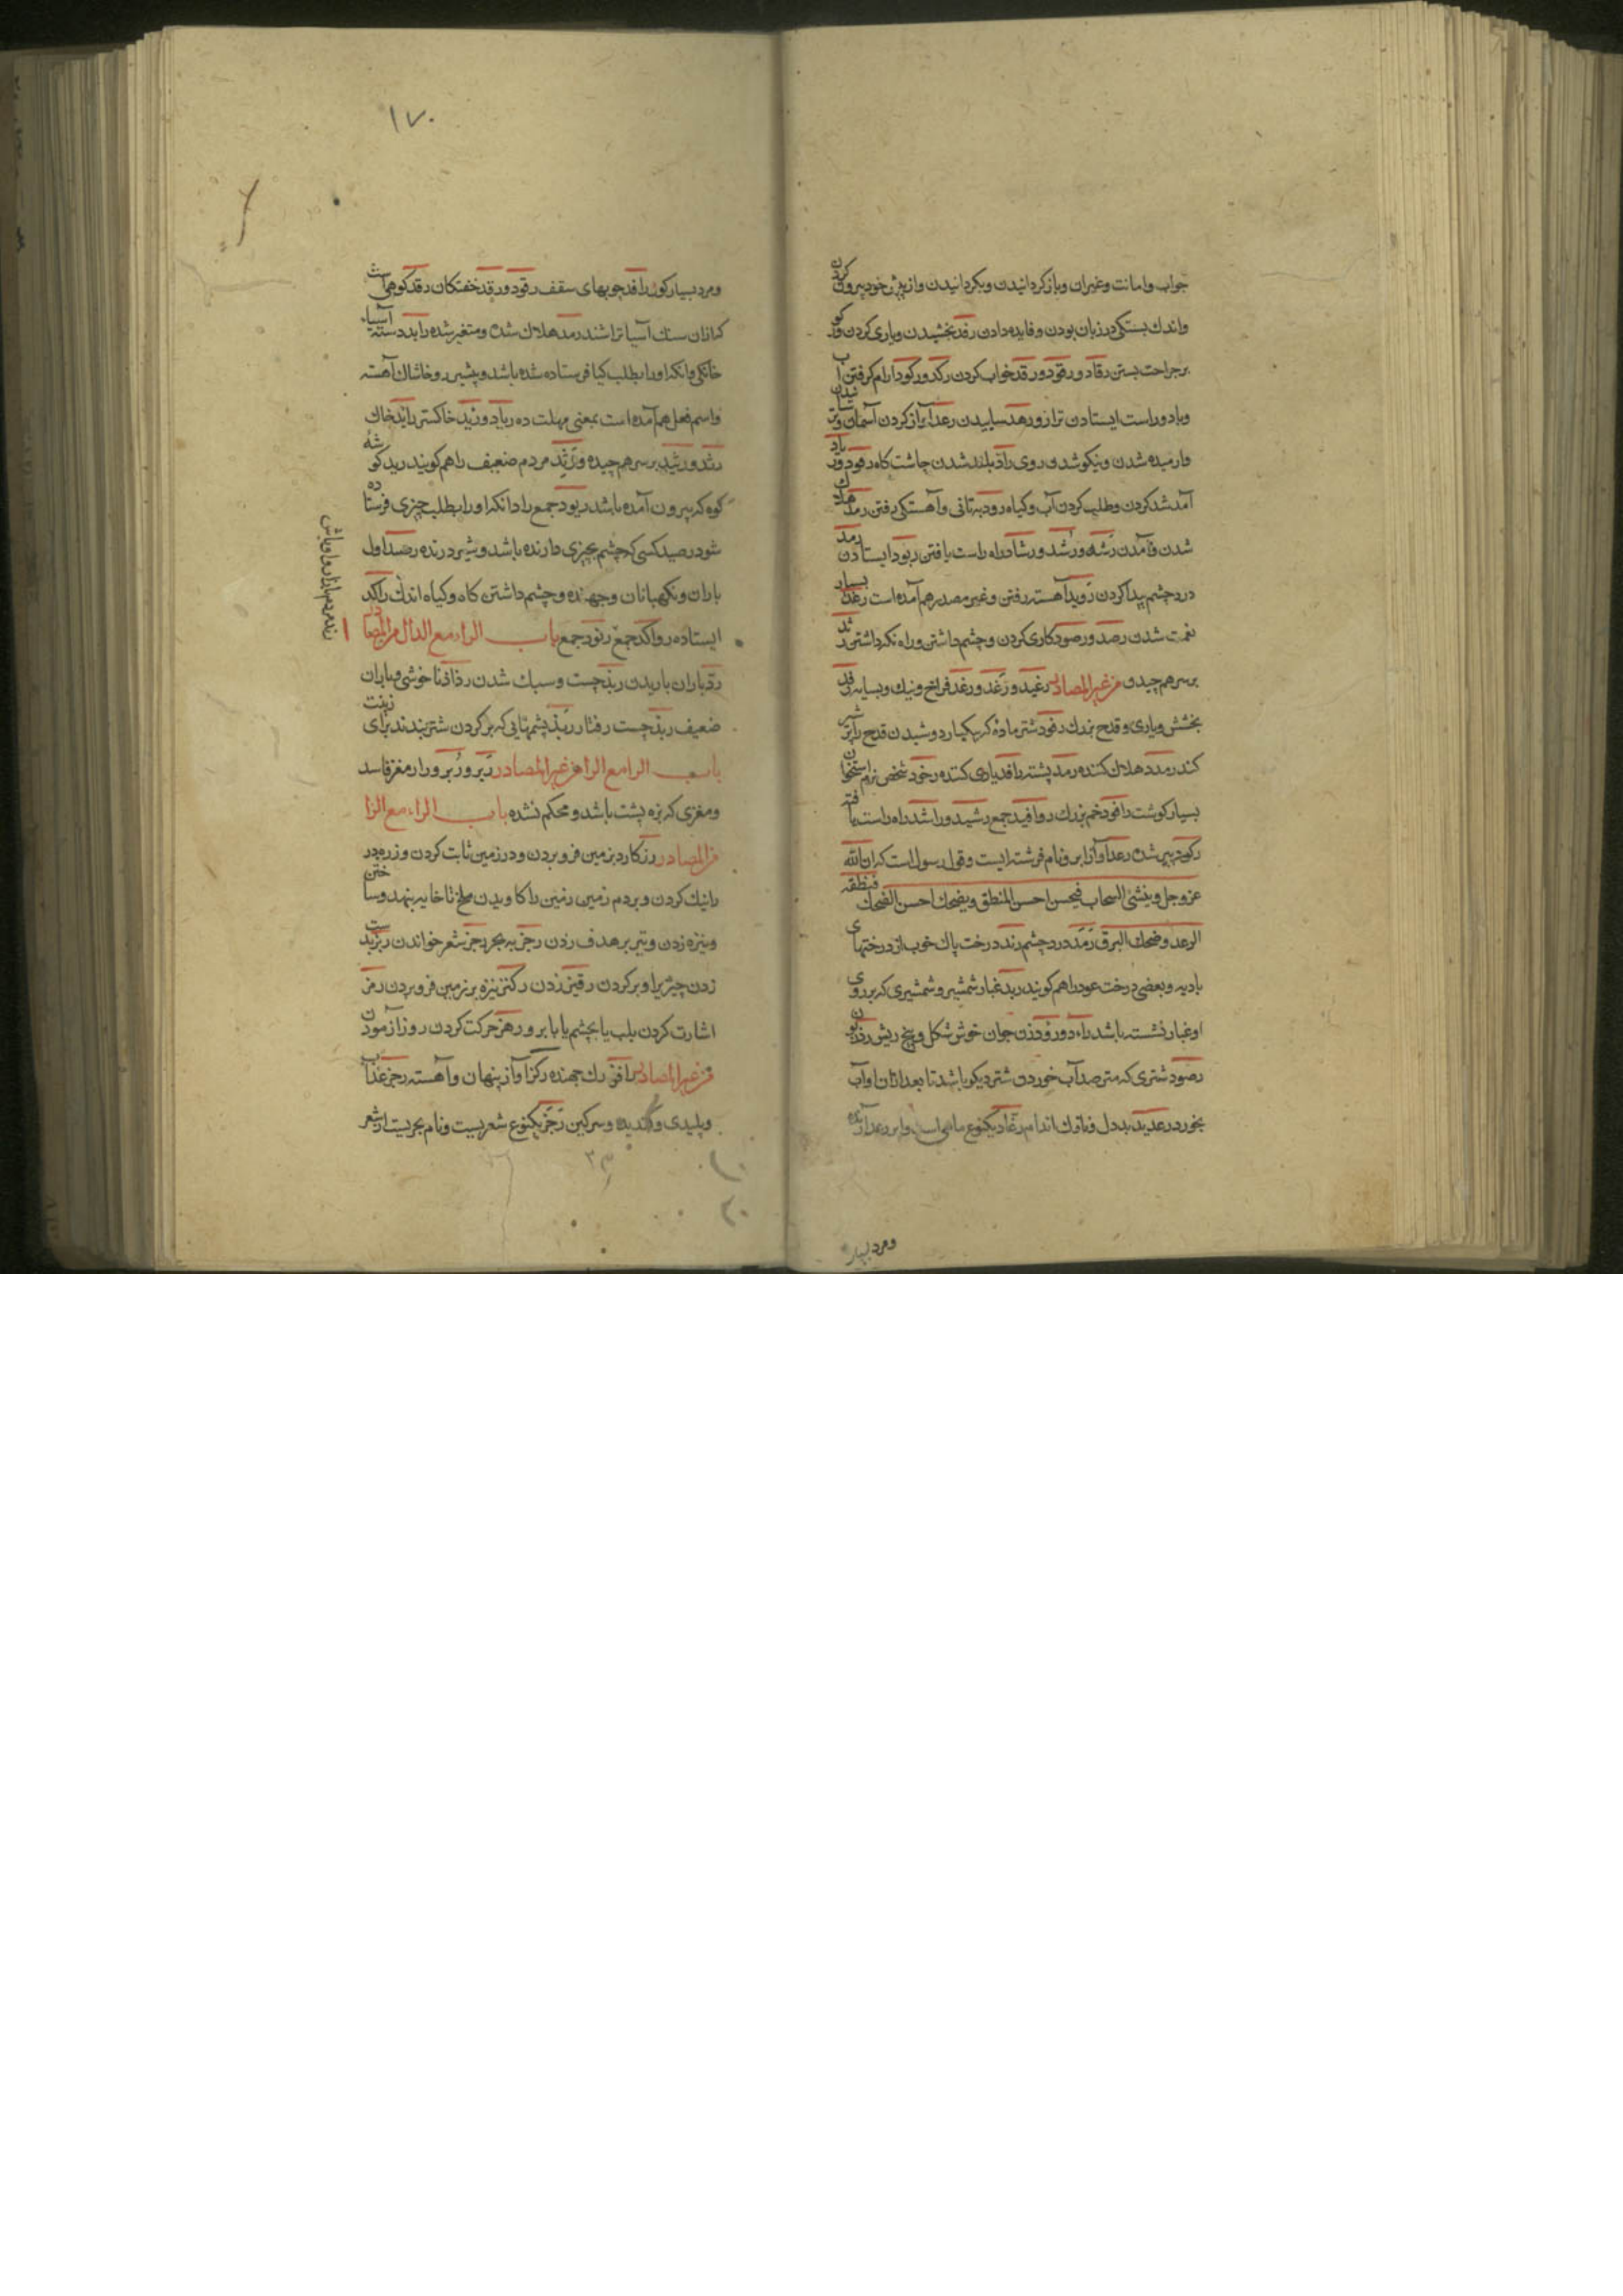 جواب وامانت وغیران وبازکردانیدن وبکردانیدن وازپیش خود بیرون کردن
واندك بستکی درزبان بودن وفایده دادن رفد بخشیدن ویاری کردن وکو
برجراحت بستن رقاد ورقود ورقد خواب کردن رکد ورکود ارام کرفتن آب
وباد وراست ایستادن ترازو رهد ساییدن رعد آواز کردن آسمان وترسانیدن
وارمیده شدن ونیکو شدن روی راد بلند شدن چاشت کاه رود ورود
آمد شد کردن وطلب کردن آب وکیاه رود بتانی وآهستکی رفتن رمد هلاك
شدن وآمدن رشد ورشد ورشاد راه راست یافتن ربود ایستادن رمد
درد چشم پیدا کردن روید آهسته رفتن وغیر مصدر هم آمده است رغد بسیار
نعمت شدن رصد ورصود کاری کردن وچشم داشتن وراه نکه داشتن رثد
برسر هم چیدن من غیر المصادر رغید ورغد ورغد فراخ ونیك وبسیار رفد
بخشش ویاری وقدح بزرك رفود شتر ماده که بیکبار دوشیدن قدح را پر شیر
کند رمدد هلاك کننده رمد پشته رافد یاری کننده رخود شخص نرم استخوان
بسیار کوشت رافود خم بزرك روافید جمع رشید وراشد راه راست یافته
رکود پر شده رعد آواز ابر ونام فرشته ایست وقول رسول است که ان الله
عزوجل وینشئ السحاب فیحسن احسن المنطق ویضحك احسن الضحك فمنطقه
الرعد وضحك البرق رمد درد چشم رند درخت پاك خوب از درختهای
بادیه وبعضی درخت عود را هم کویند ربد غبار شمشیر وشمشیری که بر روی
اوغبار نشسته باشد راد ورود زن جوان خوش شکل وبیخ ریش
رصود شتری که مترصد آب خوردن شتر دیکر باشد تا بعد ازان او آب
بخورد رعدید بد دل ونازك اندام رعاد یکنوع ماهی است وابر رعد آرنده
ومرد بسیار
۱۷۰
ومرد بسیار کوی رافد چوبهای سقف رقود ورقد خفتکان رقد کوهی است
که ازان سنك آسیا تراشند رمد هلاك شده ومتغیر شده راید دسته آسیاء
خانکی وانکه اورا بطلب کیا فرستاده شده باشد وپیش رو خاشاك آهسته
واسم فعل هم آمده است بمعنی مهلت ده رباد ورید خاکستر راید خاك
رثد ورثید برسر هم چیده ورثد مردم ضعیف را هم کویند رید کوشه
کوه که بیرون آمده باشد ریود جمع راد انکه اورا بطلب چیزی فرستاده
شود رصید کسی که چشم بچیزی دارنده باشد وشیر درنده رصد اول
باران ونکهبانان وجهنده وچشم داشتن کاه وکیاه اندك راکد
ایستاده رواکد جمع رنود جمع باب الراء مع الدال من المصادر
رذ باران باریدن ربذ چست وسبك شدن رذاذ ناخوشی وباران
ضعیف ربذ چست رفتار ربذ پشمهایی که بر کردن شتر بندند برای زینت
باب الرا مع الرا من غیر المصادر ریر وریر ورار مغز فاسد
ومغزی که بزه پشت باشد ومحکم نشده باب الراء مع الزا
من المصادر رز کارد بزمین فرو بردن ودر زمین ثابت کردن وزره در
رانیك کردن وبردم زمین زمین را کاویدن ملخ تا خایه بنهد وساختن
ونیزه زدن وتیر بر هدف زدن رجز به بحر رجز شعر خواندن ربز بدست
زدن چیزیرا وپر کردن رقیز زدن رکز نیزه بر زمین فرو بردن رمز
اشارت کردن بلب یا بچشم یا بابرو رهز حرکت کردن روز آزمودن
من غیر المصادر رافز رك جهنده رکز آواز پنهان وآهسته رجز عذاب
وپلیدی وکندیده وسرکین رجز یکنوع شعریست ونام بحریست از شعر